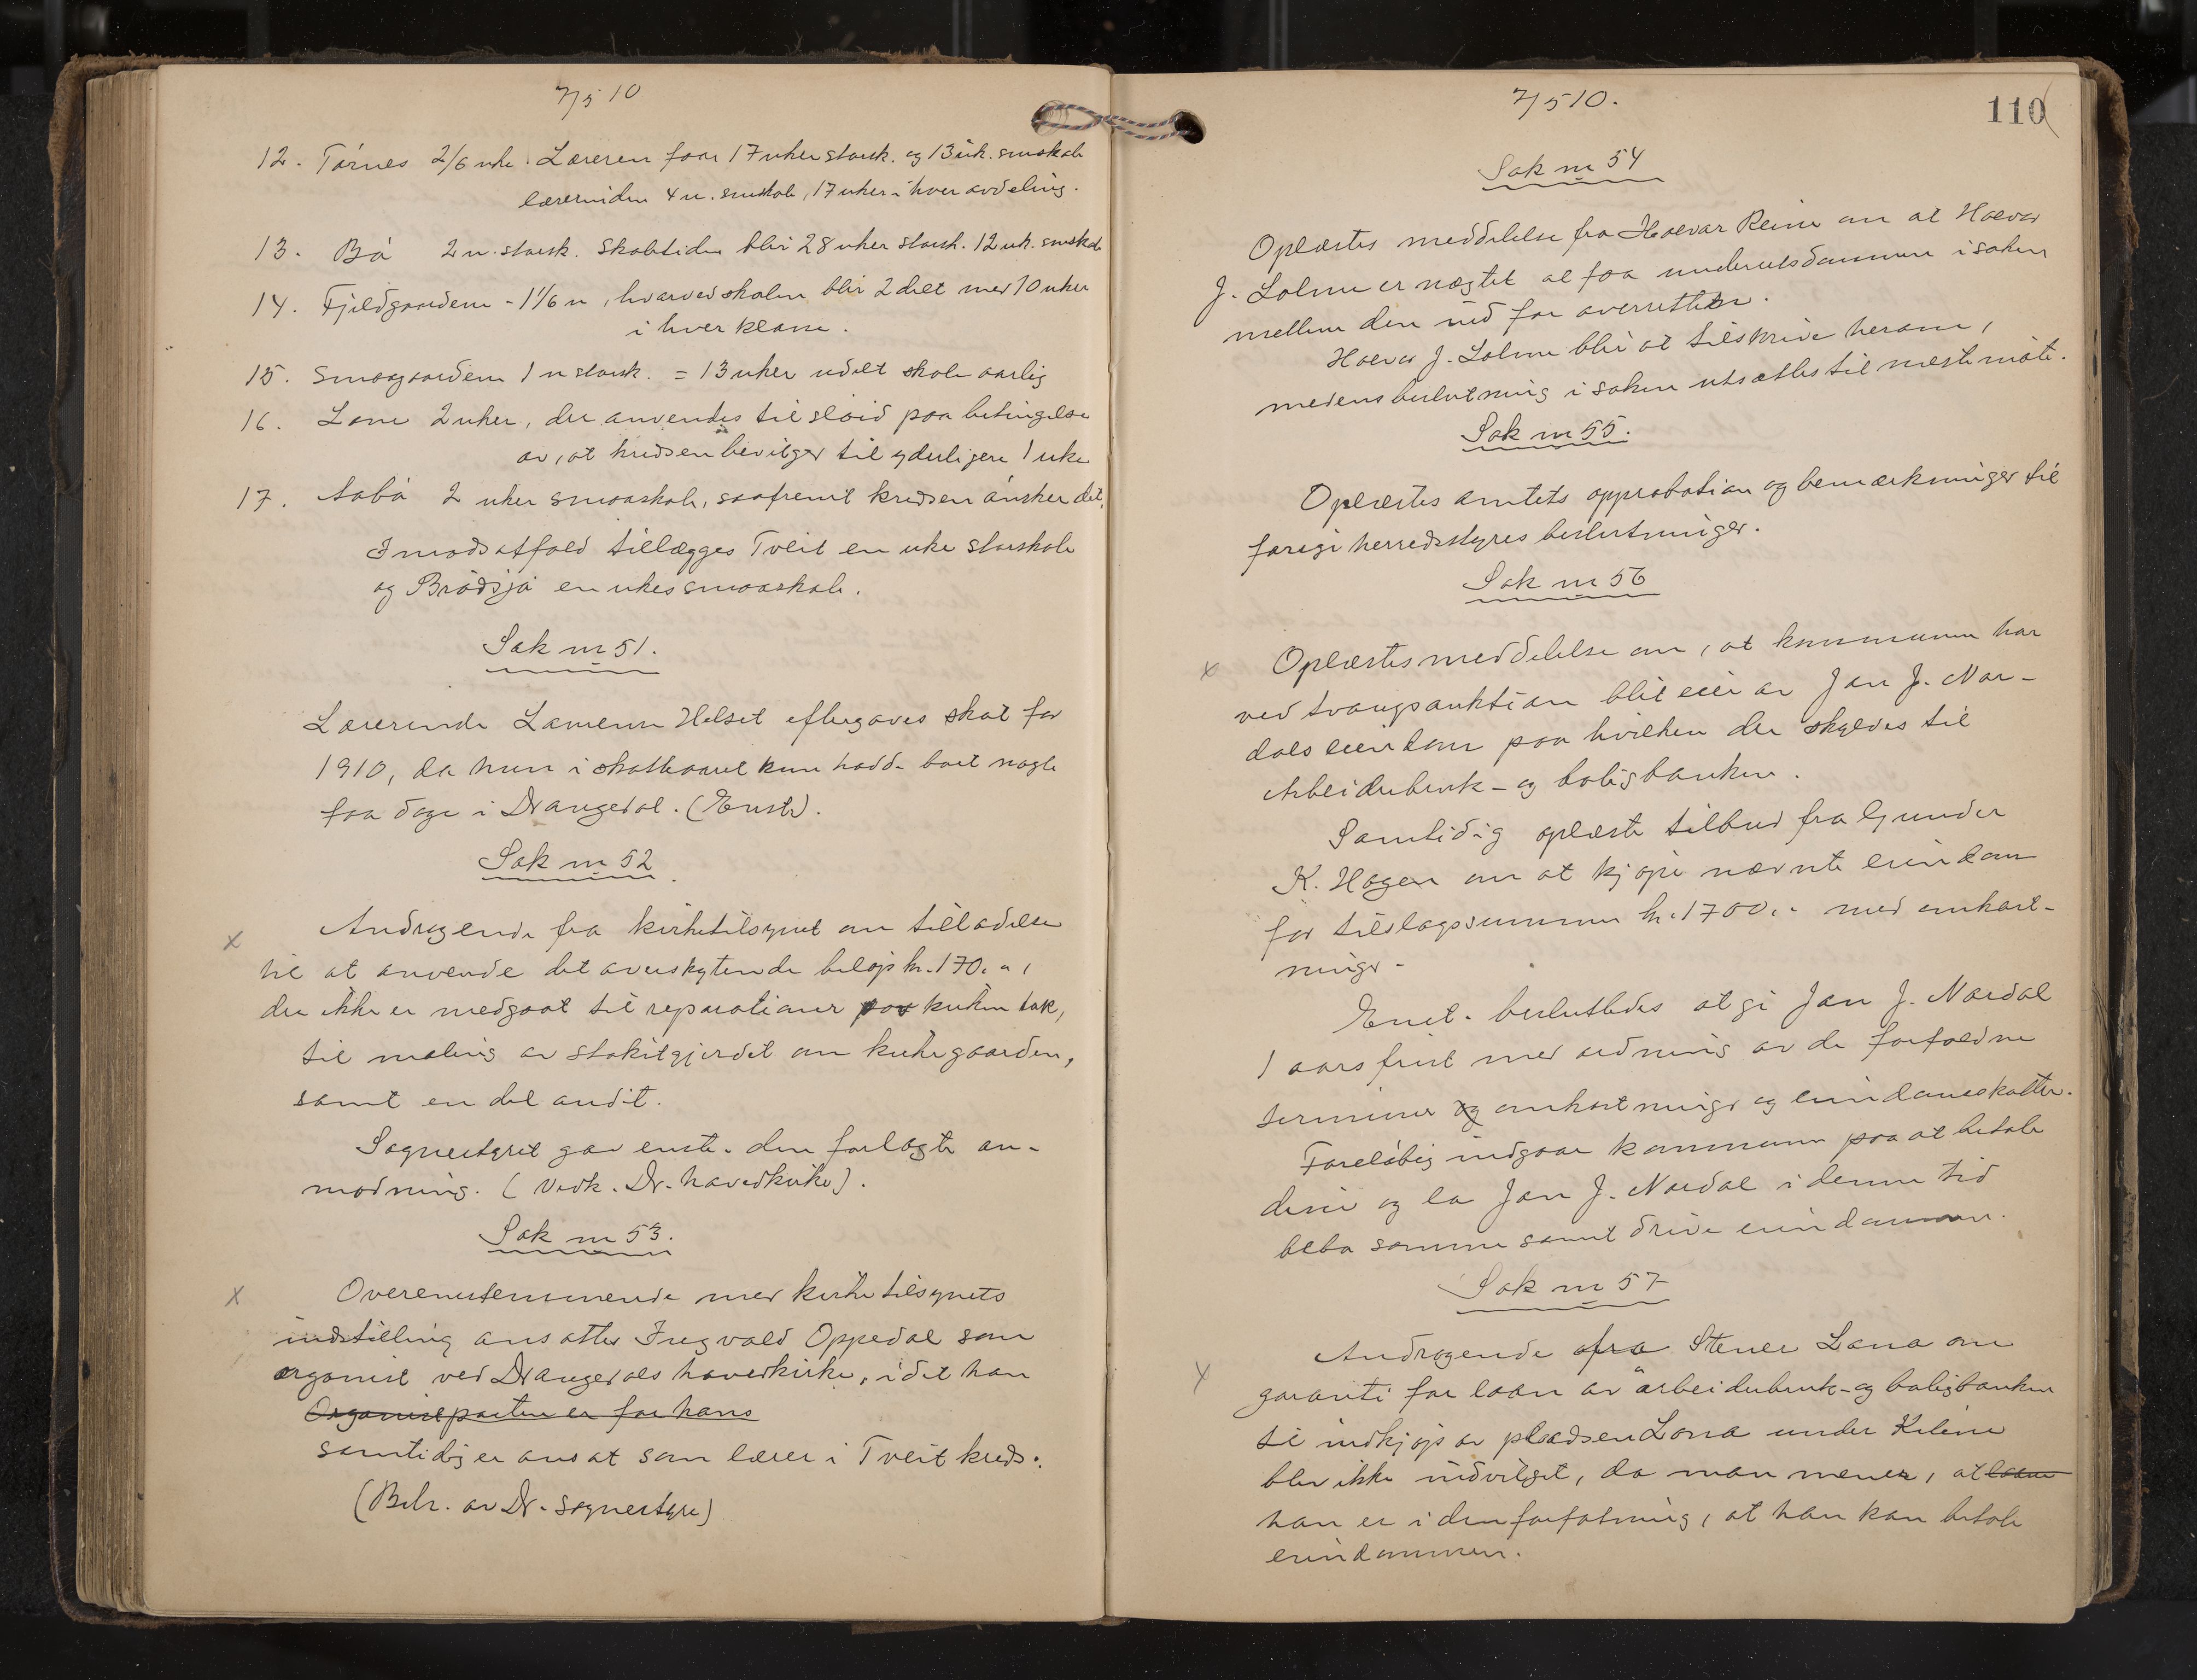 7/5 10
12. Törnes 2/6 uke. Læreren faar 17 uker storsk. og 13 uk. smskole
lærerinden 4 u. smskole, 17 uker i hver avdeling.
13. Bö 2 u. storsk. Skoletiden blir 28 uker storsk. 12 uk. smskole
14. Fjeldgaardene - 1 1/6 u, hvorved skolen blir 2delt med 10 uker
i hver klasse.
15. Smaagaardene 1 u storsk. = 13 uker udelt skole aarlig
16. Lone 2 uker, der anvendes til slöid paa betingelse
av, at kredsen bevilger til yderligere 1 uke
17. Aabö 2 uker smaaskole, saafremt kredsen önsker det,
I modsat fald tillægges Tveit en uke storskole
og Brödsjö en ukes smaaskole.
Sak nr 51.
Lærerinde Helset eftergaves skat for
1910, da hun i skatteaaret kun hadde boet nogle
faa dage i Drangedal. (Enst.).
Sak nr 52.
x Andragende fra kirketilsynet om tilladelse
til at anvende det overskytende belöp kr. 170.",
der ikke er medgaat til reparationer paa kirkens tak,
til maling av stakitgjerdet om kirkegaarden,
samt en del andet.
Sognestyret gav enst. den forlagte an-
modning. (Vedk. Dr. hovedkirke).
Sak nr 53.
x Overensstemmende med kirketilsynets
indstilling ansattes Ingvald Oppedal som
organist ved Drangedals hovedkirke, idet han
Organistposten er for hans
samtidig er ansat som lærer i Tveit kreds.
(Beh. av Dr. sognestyre)
7/5 10.
110
Sak nr 54
Oplæstes meddelelse fra Halvor Reine om at Halvor
J. Solme er nægtet at faa underretsdommen i saken
mellem dem ind for overretten.
Halvor J. Solme blir at tilskrive herom,
medens beslutning i saken utsættes til næste möte.
Sak nr 55.
Oplæstes amtets approbation og bemerkninger til
forrige herredsstyres beslutninger.
Sak nr 56
x Oplæstes meddelelse om, at kommunen har
ved tvangsauktion blit eier av Jan J. Nor-
dals eiendom paa hvilken der skyldes til
Arbeiderbruk- og boligbanken.
Samtidig oplæste tilbud fra Gunder
K. Hagen om at kjöpe nævnte eiendom
for tilslagssummen kr. 1700.- med omkost-
ninger.
Enst. besluttedes at gi Jan J. Nordal
1 aars frist med ordning av de forfaldne
terminer og omkostninger og eiendomsskatter.
Foreløbig indgaar kommunen paa at betale
disse og la Jan J. Nordal i denne tid
bebo samme samt drive eiendommen.
Sak nr 57
x Andragende fra Stener Lona om
garanti for laan av arbeiderbruk- og boligbanken
til indkjöp av pladsen Lona under Kileine
blev ikke indvilget, da man mener, at
han er i den forfatning, at han kan betale
eiendommen.